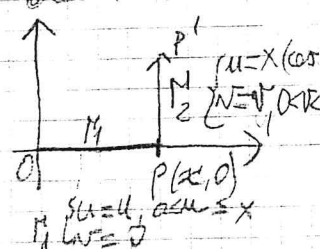 P'
Γ₂ { u = x (cos
{ v = v, 0<v<
Γ₁
O P(x, 0)
Γ₁ { u = u, 0≤u≤x
{ v = 0